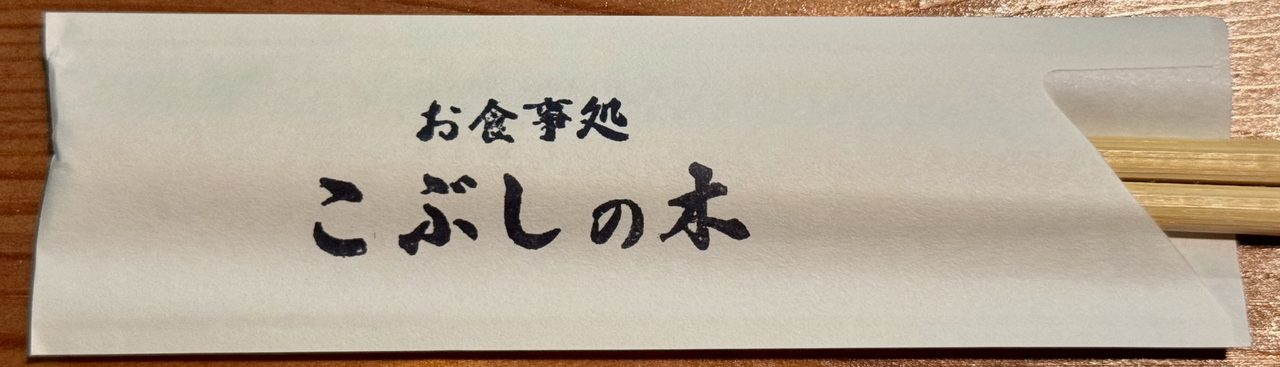 お食事処
こぶしの木